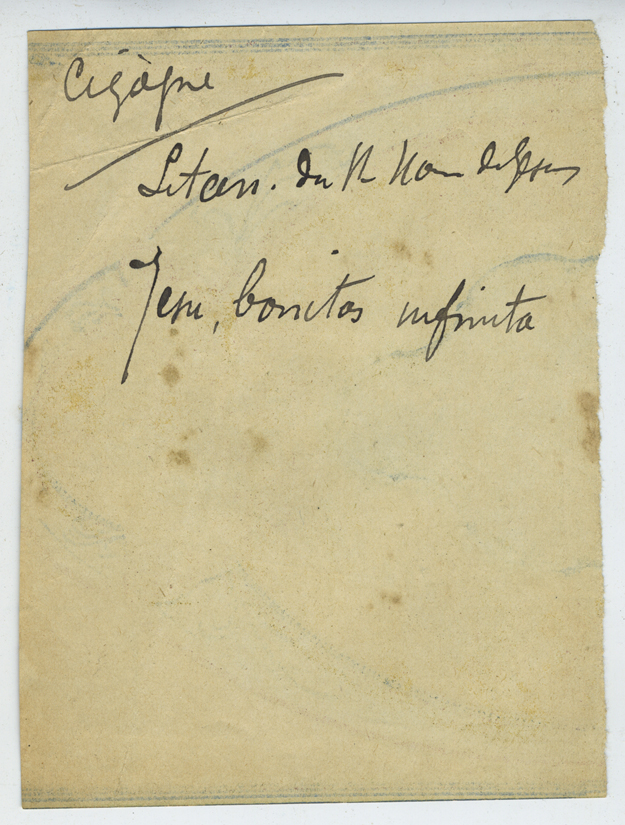 Cigògne
Litan. du St Nom de Jesus
Jesu, bonitas infinita